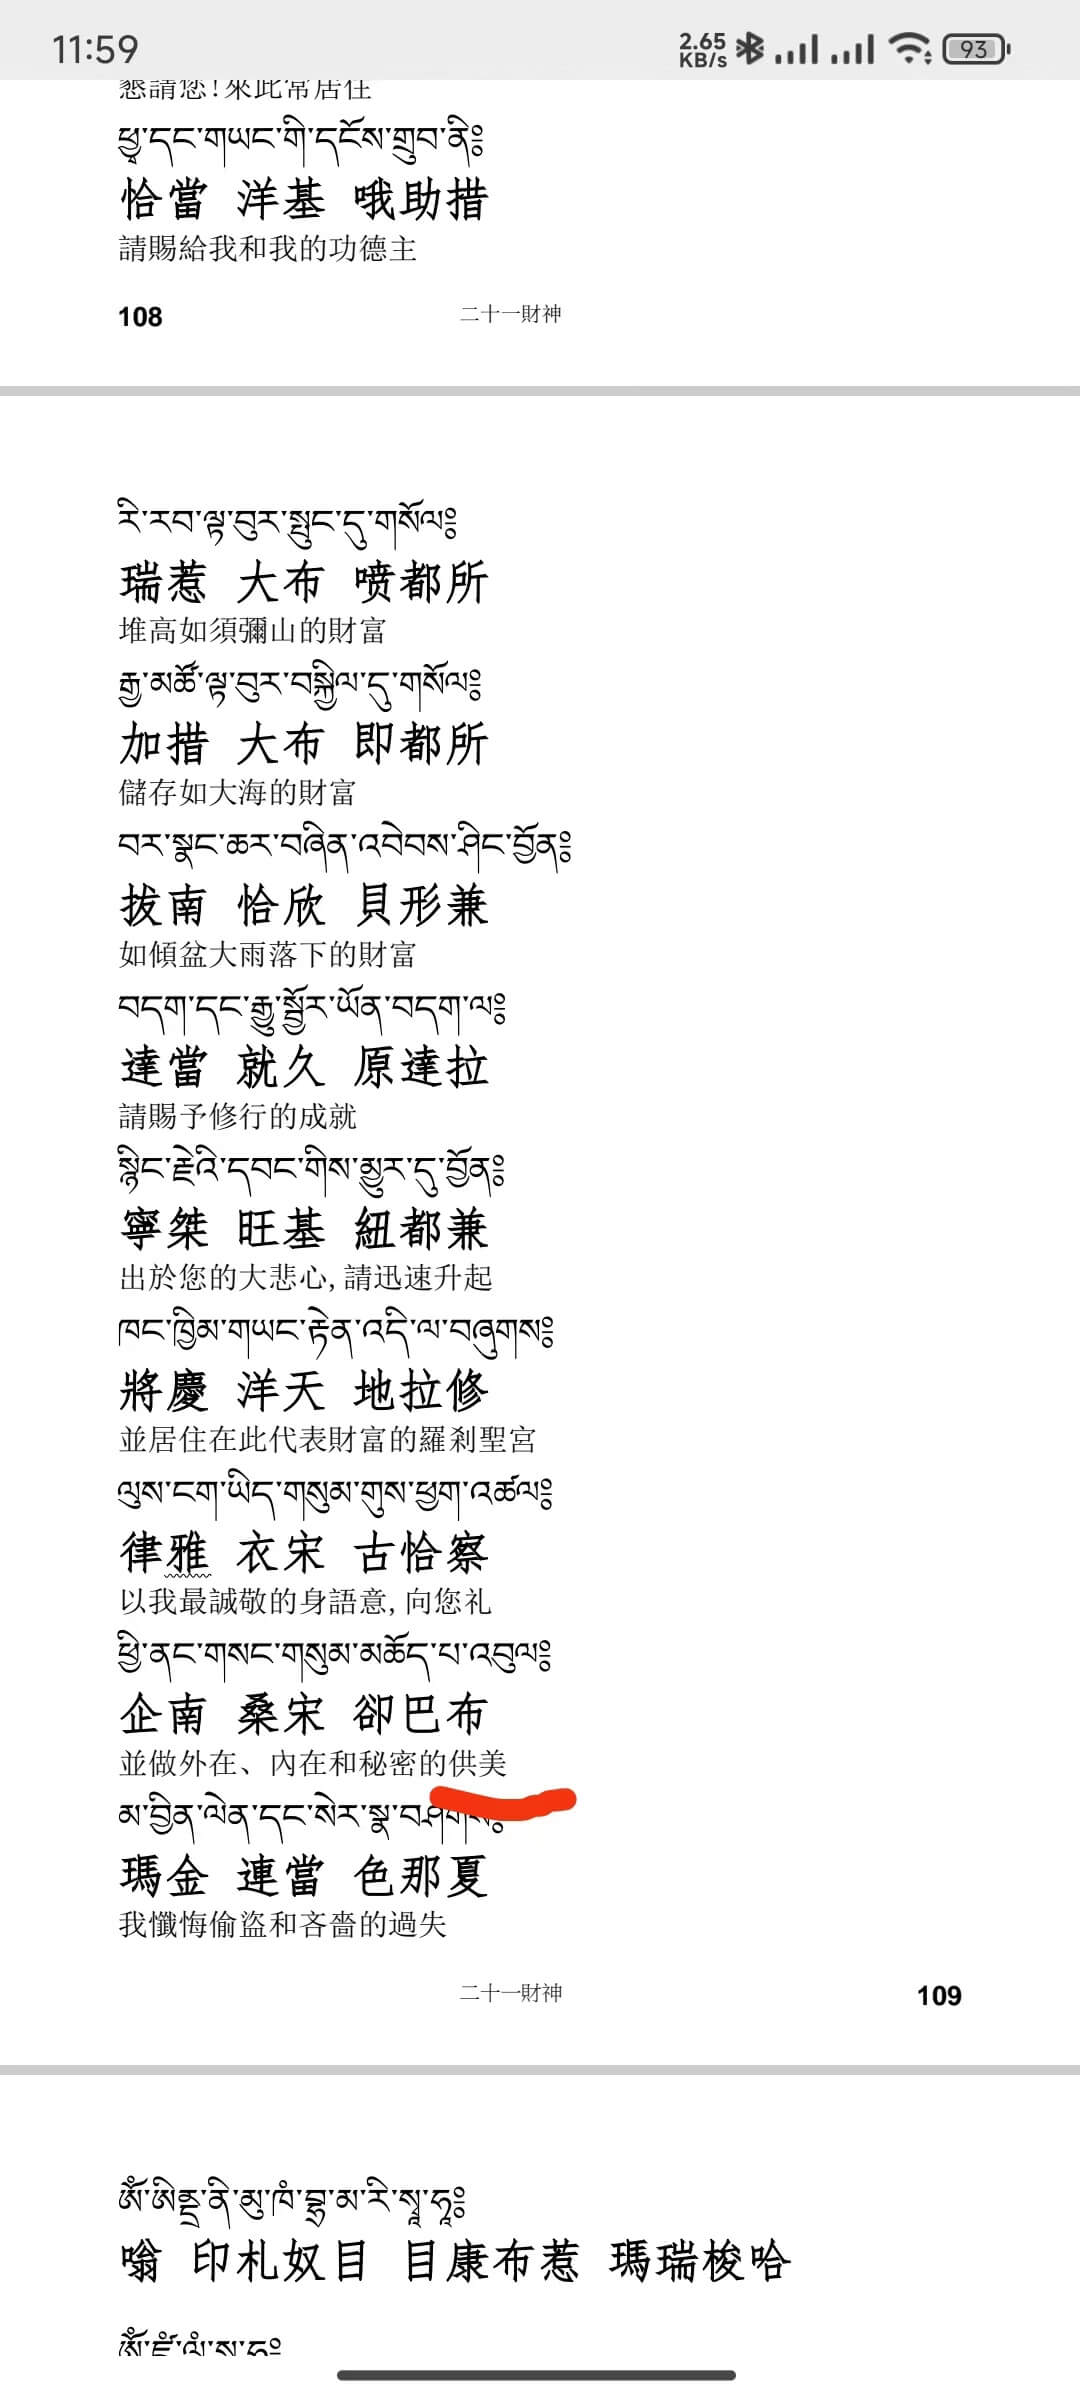 11:59
2.65 KB/s
93
懇請您!來此常居住
ཕྱྭ་དང་གཡང་གི་དངོས་གྲུབ་ནི༔
恰當 洋基 哦助措
請賜給我和我的功德主
108
二十一財神
རི་རབ་ལྟ་བུར་སྤུང་དུ་གསོལ༔
瑞惹 大布 喷都所
堆高如須彌山的財富
རྒྱ་མཚོ་ལྟ་བུར་བསྐྱིལ་དུ་གསོལ༔
加措 大布 即都所
儲存如大海的財富
བར་སྣང་ཆར་བཞིན་འབེབས་ཤིང་བྱོན༔
拔南 恰欣 貝形兼
如傾盆大雨落下的財富
བདག་དང་རྒྱུ་སྦྱོར་ཡོན་བདག་ལ༔
達當 就久 原達拉
請賜予修行的成就
སྙིང་རྗེའི་དབང་གིས་མྱུར་དུ་བྱོན༔
寧桀 旺基 紐都兼
出於您的大悲心,請迅速升起
ཁང་ཁྱིམ་གཡང་རྟེན་འདི་ལ་བཞུགས༔
將慶 洋天 地拉修
並居住在此代表財富的羅刹聖宮
ལུས་ངག་ཡིད་གསུམ་གུས་ཕྱག་འཚལ༔
律雅 衣宋 古恰察
以我最誠敬的身語意,向您礼
ཕྱི་ནང་གསང་གསུམ་མཆོད་པ་འབུལ༔
企南 桑宋 卻巴布
並做外在、內在和秘密的供美
མ་བྱིན་ལེན་དང་སེར་སྣ་བཤགས༔
瑪金 連當 色那夏
我懺悔偷盜和吝嗇的過失
二十一財神
109
嗡 印札奴目 目康布惹 瑪瑞梭哈